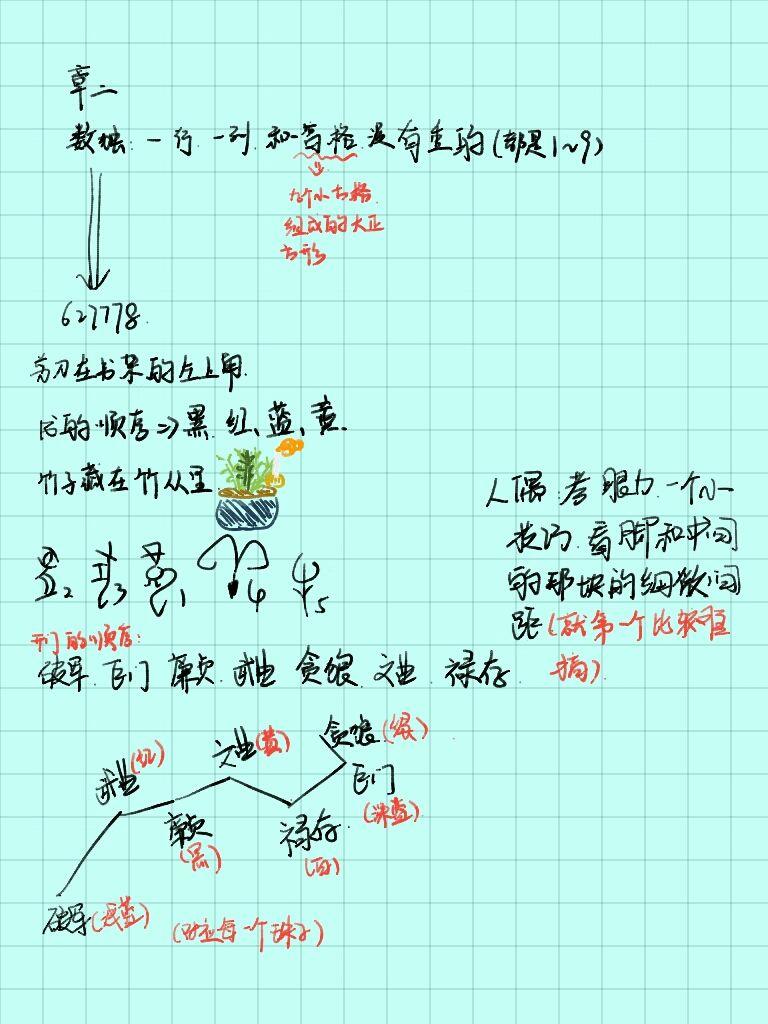 章二
数独：一行 一列 和宫格 没有重的(都是1~9)
九个小方格
组成的大正
方形
627778
剪刀在书架的左上角
的顺序⇒黑、红、蓝、黄.
竹子藏在竹丛里
人偶：考眼力.一个小
技巧.看脚和中间
的那块的细微间
距(就第一个比较难
搞)
2 3 1 4 5
开门的顺序:
破军 巨门 廉贞 武曲 贪狼 文曲 禄存
贪狼(绿)
文曲(黄)
武曲(红)
巨门
(深蓝)
廉贞
(黑)
禄存
(白)
破军(浅蓝)
(对应每一个珠子)